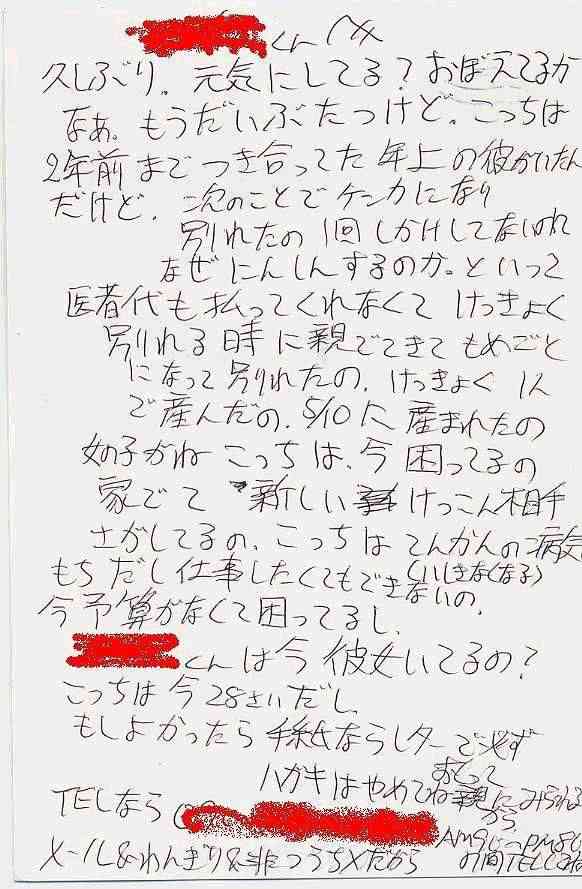 くんへ
久しぶり。元気にしてる?おぼえてるか
なあ。もうだいぶたつけど。こっちは
2年前までつき合ってた年上の彼がいたん
だけど、次のことでケンカになり
別れたの1回しかHしてないのに
なぜにんしんするのか。といって
医者代も払ってくれなくてけっきょく
別れる時に親でてきてもめごと
になって別れたの、けっきょく1人
で産んだの、5/10に産まれたの
女の子がね こっちは、今困ってるの
家でて 新しい けっこん相手
さがしてるの、こっちはてんかんの病気
もちだし仕事したくてもできないの、
(いしきなくなる)
今予算がなくて困ってるし、
くんは今彼女いてるの?
こっちは今28さいだし、
もしよかったら手紙ならレターで必ず
おくって
ハガキはやめてね親にみられる
から
TELなら
AM9じ〜PM8じ
の間TEL
メール&わんぎり&非つうち×だから